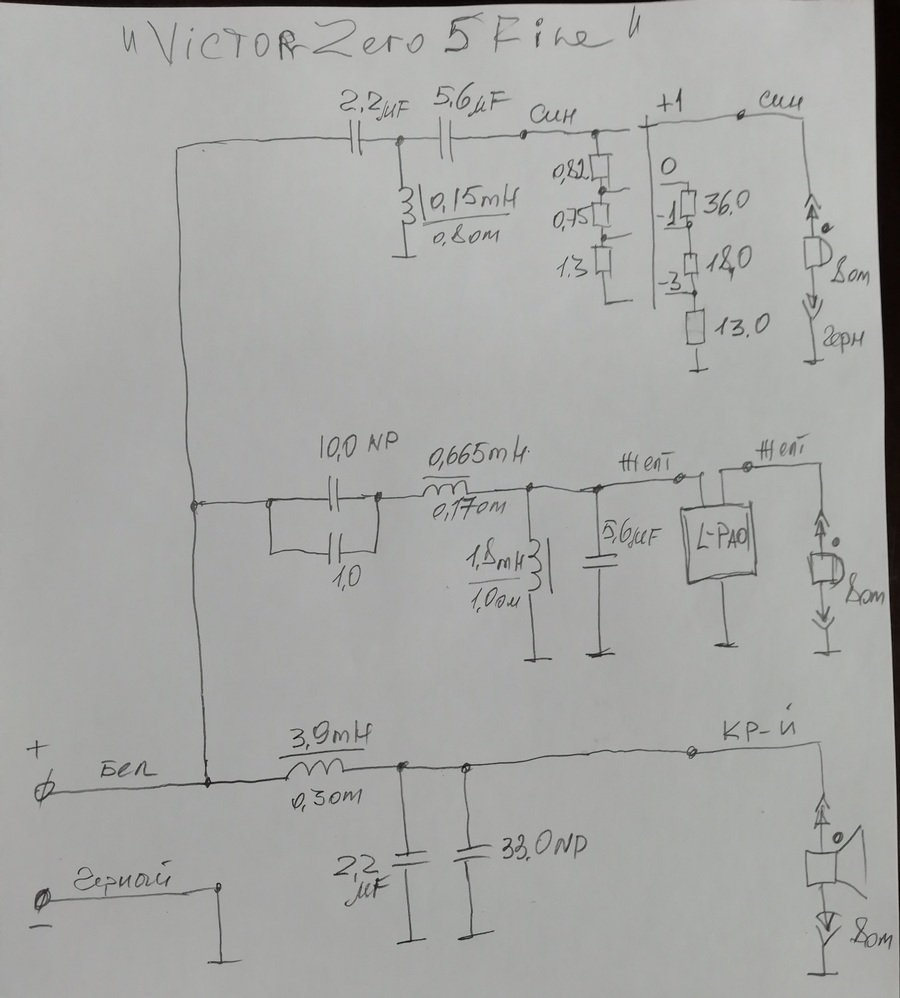 "VICTOR Zero 5 Fine"
2,2 µF
5,6 µF
син
+1
син
0,82
0
0,15mH
0,8om
0,75
-1
36.0
1.3
-3
18,0
8om
13.0
Черн
10,0 NP
0,665mH
0,17om
Желт
Желт
1,0
1,8mH
1,0ом
5,6µF
L-PAD
8om
+
Бел
3,9mH
0,3om
КР-Й
2,2
µF
33.0NP
Черный
-
8om